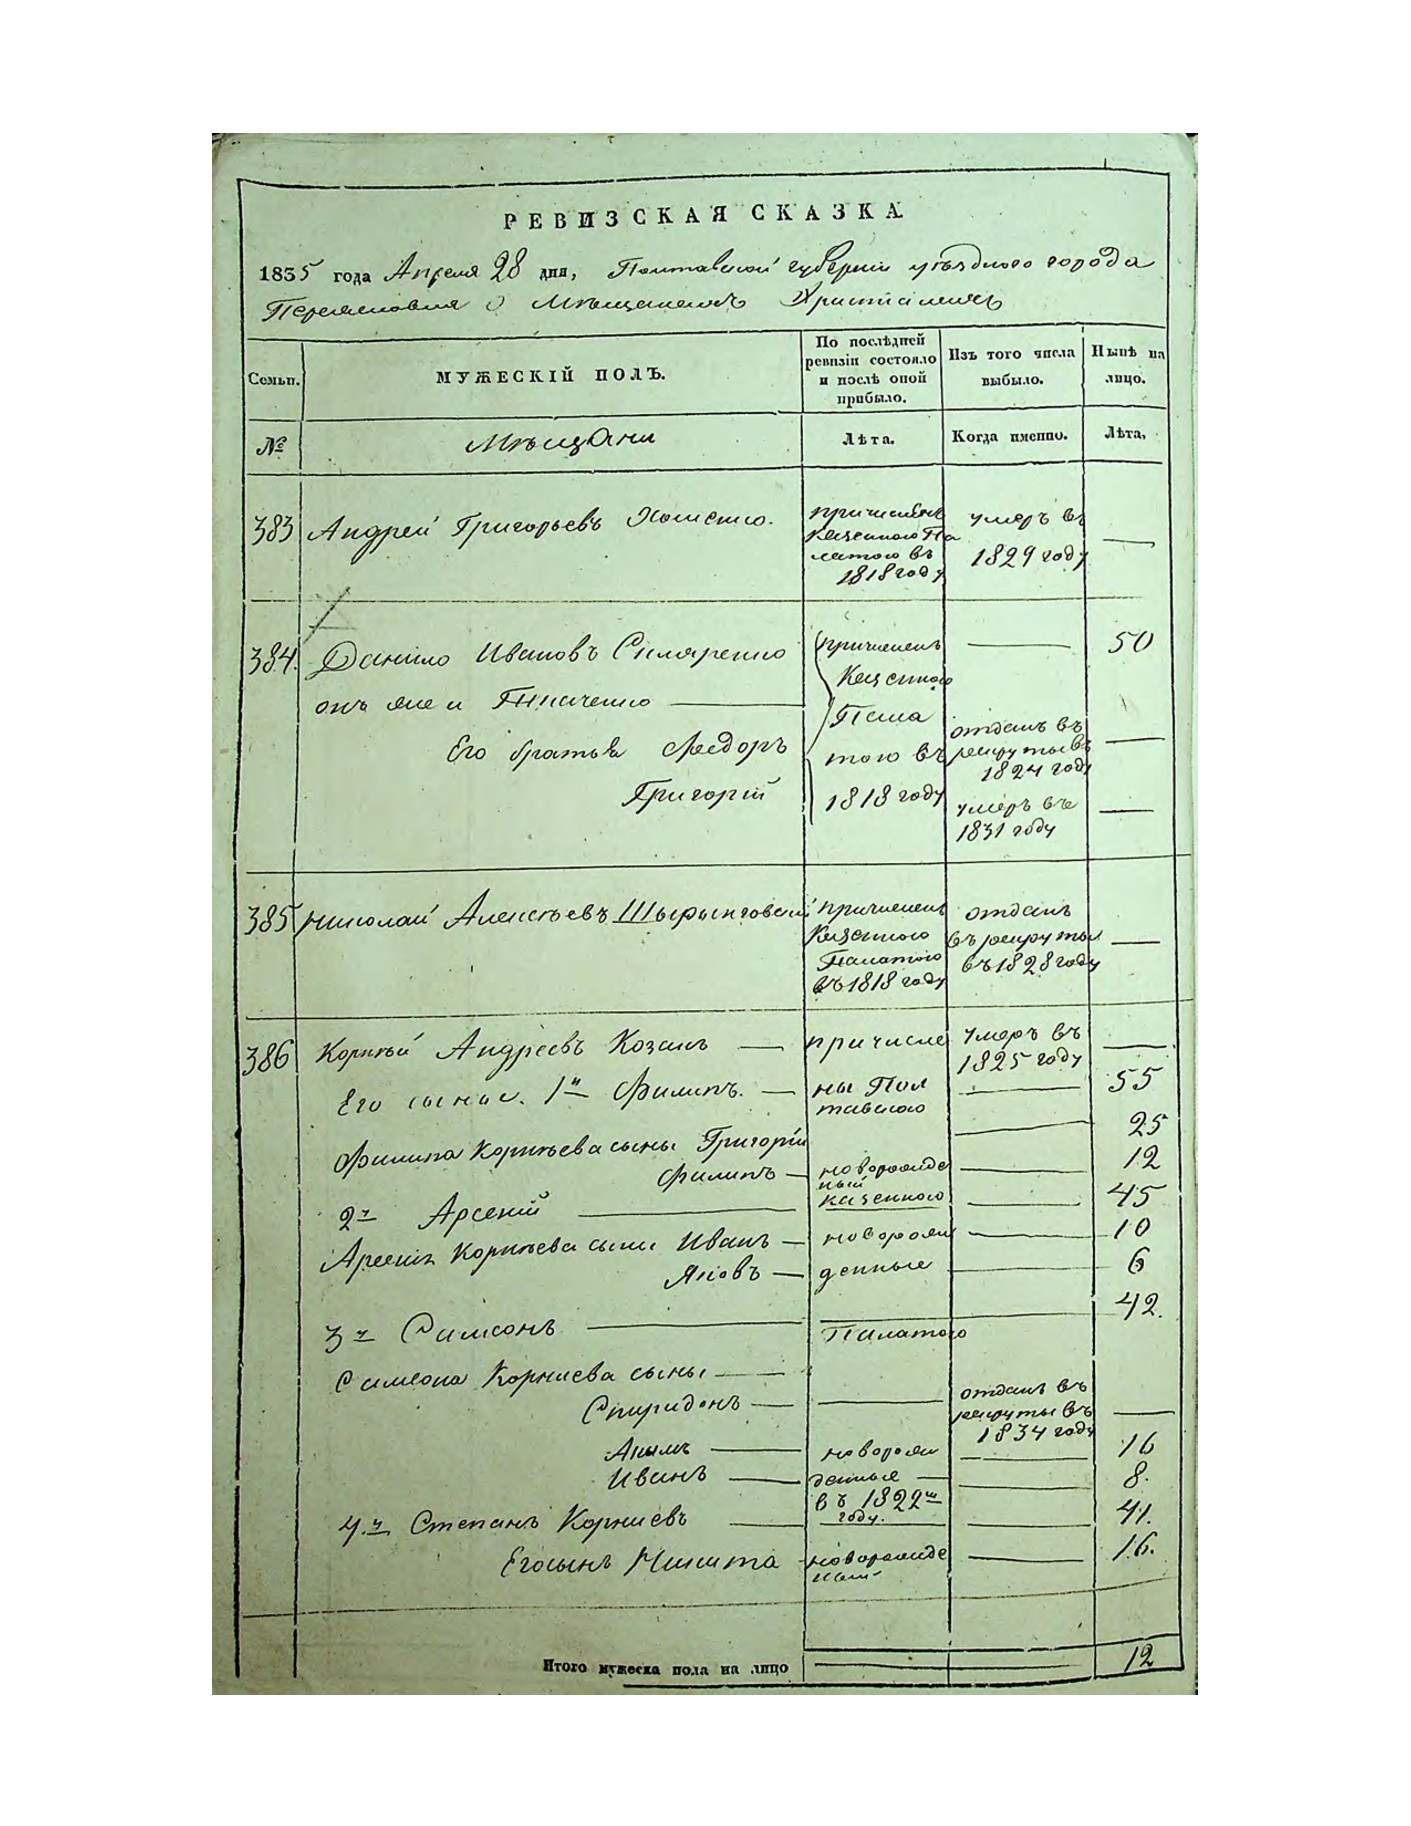 РЕВИЗСКАЯ СКАЗКА.
1835 года Апреля 28 дня, Полтавской губернiи уѣзднаго города
Переяслова о Мѣщанахъ Христiянахъ
Семьи.
МУЖЕСКIЙ ПОЛЪ.
По послѣдней
ревизiи состояло
и послѣ оной
прибыло.
Изъ того числа
выбыло.
Нынѣ на
лицо.
№
Мѣщани
Лѣта.
Когда именно.
Лѣта,
383 Андрей Григорьевъ Хоменко.
причисленъ
Казенною Па
латою въ
1818 году
умеръ въ
1829 году
—
384. Данило Ивановъ Скляренко
онъ же и Ткаченко —
Его братья Федоръ
Григорiй
причислен
Казенною
Пала
тою въ
1818 году
—
отданъ въ
рекруты въ
1824 году
умеръ въ
1831 году
50
—
—
385 Николай Алексѣевъ
причислен
Казенною
Палатою
въ 1818 году
отданъ
въ рекруты
въ 1828 году
—
386 Корнѣй Андреевъ Козакъ —
причисле
умеръ въ
1825 году
—
Его сыные. 1й Филипъ. —
ны Пол
тавскою
—
55
Филипа Корнѣева сыны Григорiй
—
25
Филипъ —
новорожде
ный
—
12
2й Арсенiй —
казенною
—
45
Арсенiя Корнѣева сыны Иванъ —
новорож
—
10
Яковъ —
денные
—
6
3й Самсонъ —
Палатою
—
42.
Самсона Корнiева сыны —
Спиридонъ —
—
отданъ въ
рекруты въ
1834 году
—
Акимъ —
новорож
—
16
Иванъ —
денные —
въ 1822м
году.
—
8.
4.й Степанъ Корнiевъ —
—
41.
Его сынъ Никита
новорожде
ный
—
16.
Итого мужеска пола на лицо
—
12